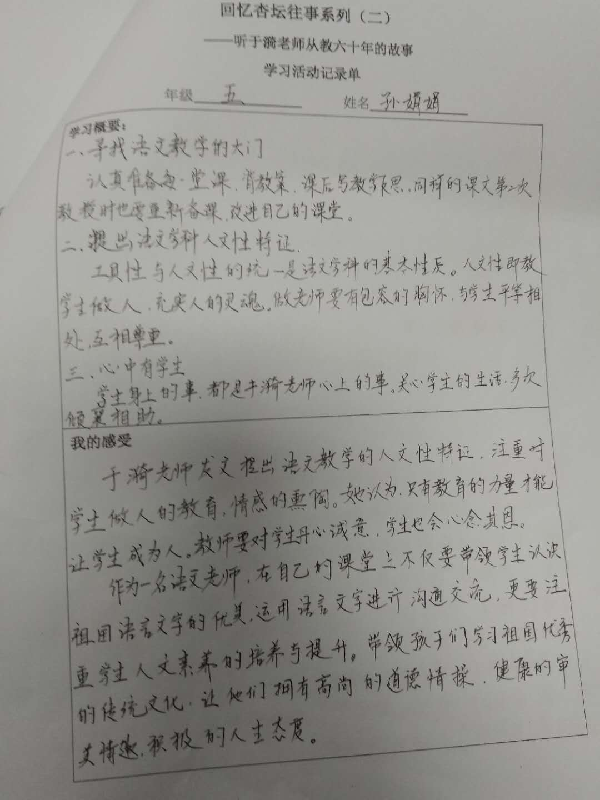 回忆杏坛往事系列（二）
——听于漪老师从教六十年的故事
学习活动记录单
年级 五 姓名 孙娟娟
学习概要：
一、寻找语文教学的大门
认真准备每一堂课，背教案，课后写教学反思，同样的课文第二次
教授时也要重新备课，改进自己的课堂。
二、提出语文学科人文性特征
工具性与人文性的统一是语文学科的基本性质。人文性即教
学生做人，充实人的灵魂。做老师要有包容的胸怀，与学生平等相
处，互相尊重。
三、心中有学生
学生身上的事，都是于漪老师心上的事。关心学生的生活，多次
倾囊相助。
我的感受
于漪老师发文提出语文教学的人文性特征，注重对
学生做人的教育，情感的熏陶。她认为，只有教育的力量才能
让学生成为人。教师要对学生丹心诚意，学生也会心念其恩。
作为一名语文老师，在自己的课堂上不仅要带领学生认识
祖国语言文字的优美，运用语言文字进行沟通交流，更要注
重学生人文素养的培养与提升。带领孩子们学习祖国优秀
的传统文化，让他们拥有高尚的道德情操，健康的审
美情趣，积极的人生态度。